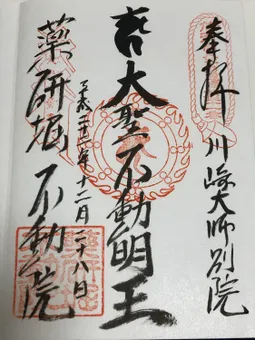 奉拝 川崎大師別院
大聖不動明王
平成 十二月二十八日
薬研堀 不動院